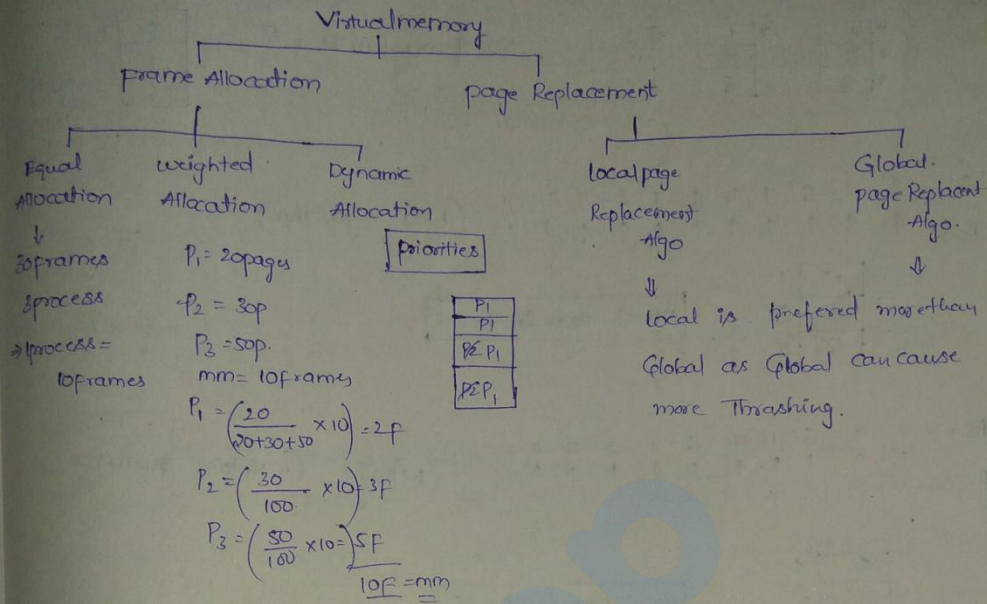 Virtualmemory
Frame Allocation
page Replacement
Equal Allocation
↓
30frames
3process
⇒ 1process =
10frames
weighted Allocation
P₁ = 20pages
P₂ = 30p
P₃ = 50p.
mm = 10frames
P₁ = (20/20+30+50 × 10) = 2F
P₂ = (30/100 × 10) = 3F
P₃ = (50/100 × 10 =) 5F
10F = mm
Dynamic Allocation
Priorities
P₁
P₁
P₁
P₁
local page
Replacement
Algo
⇓
Global.
page Replacent
Algo.
⇓
local is prefered morethan
Global as Global can cause
more Thrashing.